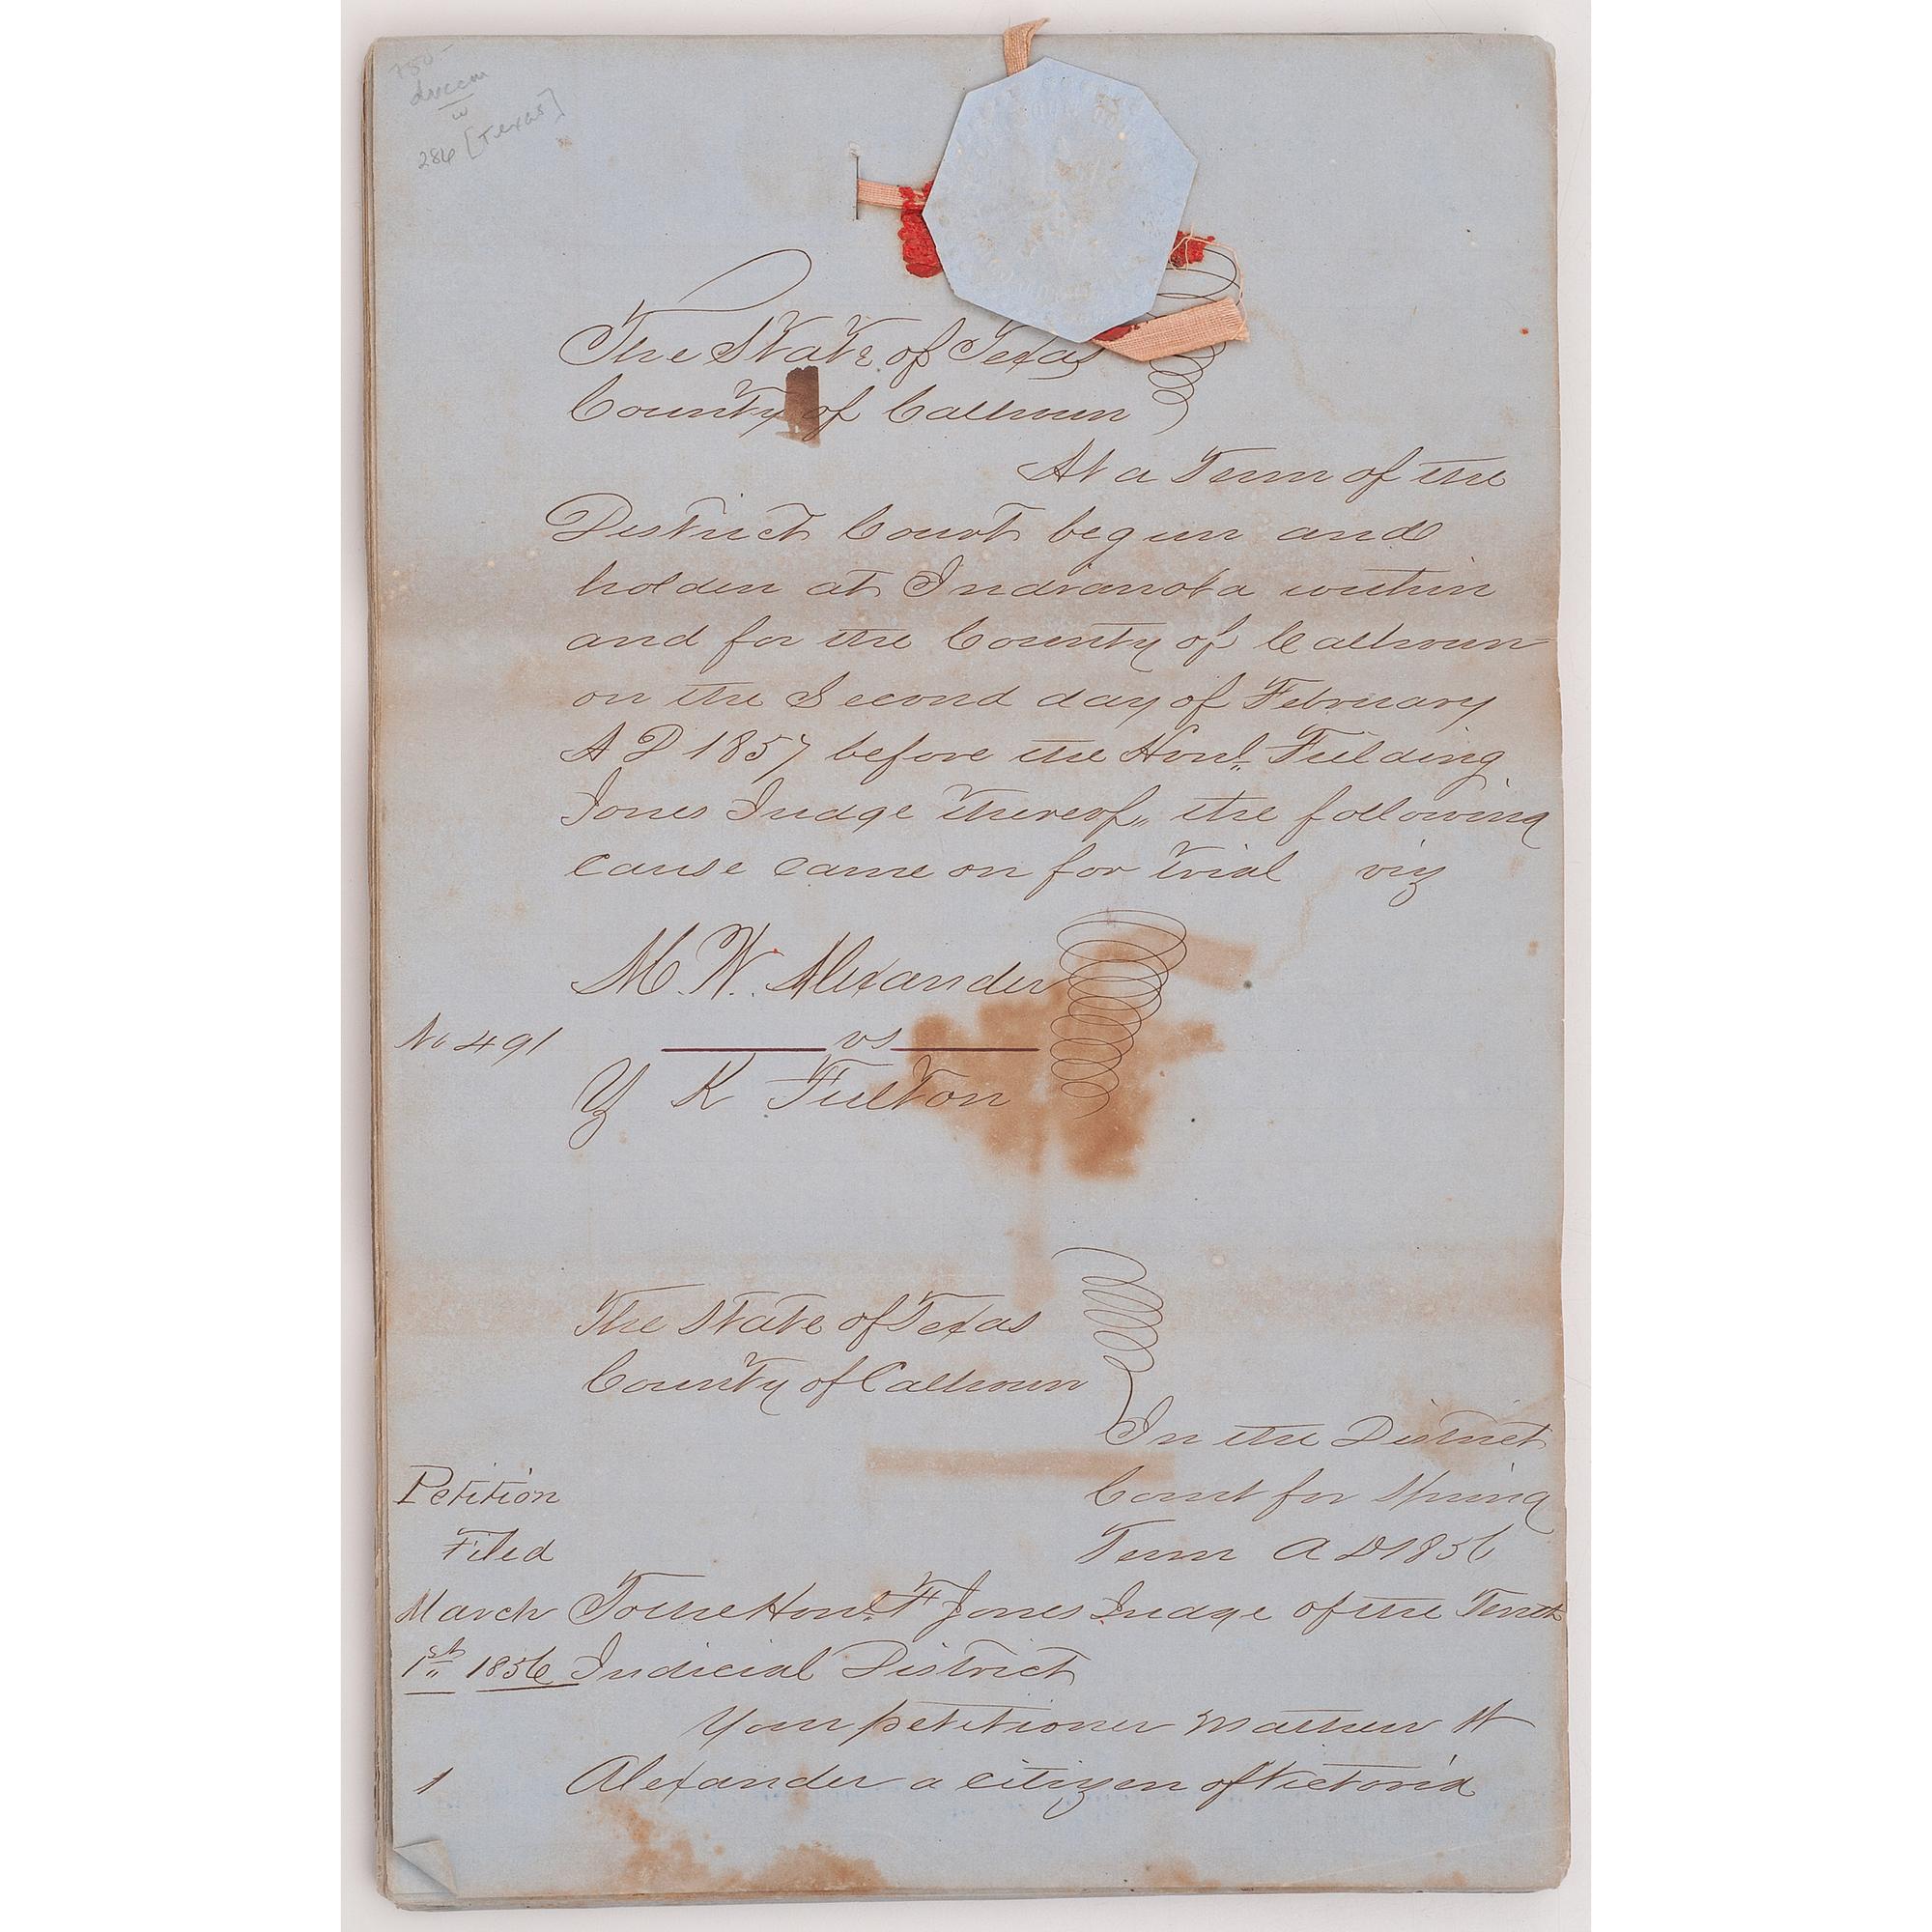 750-
w
286 [Texas]
The State of Texas
County of Calhoun
At a Term of the
District Court begun and
holden at Indianola within
and for the County of Calhoun
on the Second day of February
A D 1857 before the Honl. Fielding
Jones Judge thereof, the following
cause came on for trial viz
M. W. Alexander
No 491 vs
Y K Fulton
The State of Texas
County of Calhoun
In the District
Petition Court for Spring
Filed Term A D 1856
March To the Honl. F Jones Judge of the Tenth
1st 1856 Judicial District
Your petitioner Mathew W
1 Alexander a citizen of Victoria